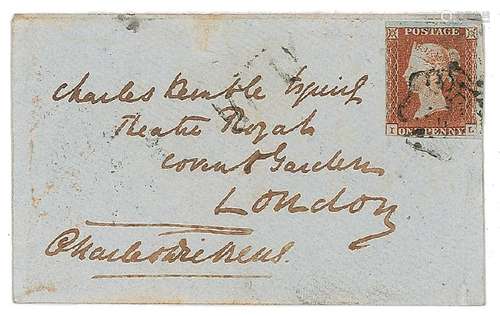 POSTAGE
I ONE PENNY L
Charles Kemble Esquire
Theatre Royal
Covent Garden
London
Charles Dickens